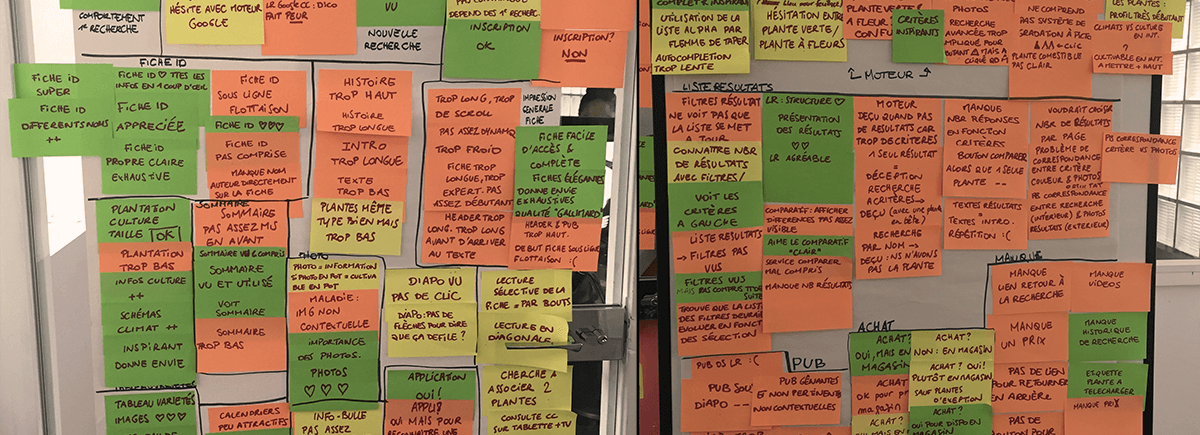 COMPORTEMENT
1° RECHERCHE
HÉSITE AVEC MOTEUR
GOOGLE
LR GOOGLE CC: DICO
FAIT PEUR
VU
NOUVELLE
RECHERCHE
DEPEND DES 1° RECHERC.
INSCRIPTION
OK
INSCRIPTION?
NON
FICHE ID
FICHE ID
SUPER
FICHE ID
DIFFERENTS NOMS
++
FICHE ID ♡ TTES LES
INFOS EN 1 COUP D'ŒIL
FICHE ID
APPRECIÉE
FICHE ID
PROPRE CLAIRE
EXHAUSTIVE
FICHE ID
SOUS LIGNE
FLOTTAISON
FICHE ID ♡♡♡
FICHE ID
PAS COMPRISE
MANQUE NOM
AUTEUR DIRECTEMENT
SUR LA FICHE
HISTOIRE
TROP HAUT
HISTOIRE
TROP LONGUE
INTRO
TROP LONGUE
TEXTE
TROP BAS
PLANTES MÊME
TYPE BIEN MAIS
TROP BAS
TROP LONG, TROP
DE SCROLL
PAS ASSEZ DYNAMQ
TROP FROID
FICHE TROP
LONGUE, TROP
EXPERT. PAS
ASSEZ DÉBUTANT
HEADER TROP
LONG. TROP LONG
AVANT D'ARRIVER
AU TEXTE
IMPRESSION
GENERALE
FICHE
FICHE FACILE
D'ACCÈS &
COMPLÈTE
FICHES ÉLÉGANTES
DONNE ENVIE
EXHAUSTIVES
QUALITÉ "GALLIMARD"
HEADER & PUB
TROP HAUT.
DEBUT FICHE SOUS LIGNE
FLOTTAISON :(
PLANTATION
CULTURE
TAILLE OK
PLANTATION
TROP BAS
INFOS CULTURE
++
SCHÉMAS
CLIMAT ++
INSPIRANT
DONNE ENVIE
TABLEAU VARIÉTÉS
IMAGES ♡♡♡
SOMMAIRE
SOMMAIRE
PAS ASSEZ MIS
EN AVANT
SOMMAIRE VU & COMPRIS
SOMMAIRE
VU ET UTILISÉ
VOIT
SOMMAIRE
SOMMAIRE
TROP BAS
CALENDRIERS
PEU ATTRACTIFS
PHOTO
PHOTO = INFORMATION
SI PHOTO EN POT = CULTIVA
BLE EN POT
MALADIE:
IMG NON
CONTEXTUELLE
IMPORTANCE
DES PHOTOS.
PHOTOS
♡♡♡
INFO-BULLE
PAS ASSEZ
DIAPO VU
PAS DE CLIC
DIAPO: PAS DE
FLÈCHES POUR DIRE
QUE ÇA DEFILE?
APPLICATION
OUI!
APPLI?
OUI MAIS POUR
RECONNAÎTRE UNE
LECTURE
SÉLECTIVE DE LA
FICHE = PAR BOUTS
LECTURE EN
DIAGONALE
CHERCHE A
ASSOCIER 2
PLANTES
CONSULTE CC
SUR TABLETTE + TV
UTILISATION DE LA
LISTE ALPHA PAR
FLEMME DE TAPER
AUTOCOMPLETION
TROP LENTE
HÉSITATION ENTRE
PLANTE VERTE/
PLANTE À FLEURS
PLANTE VERTE?
A FLEUR?
CONFU
CRITÈRES
INSPIRANTS
PHOTOS
RECHERCHE
AVANCÉE, TROP
IMPLIQUÉ POUR
NE COMPREND
PAS SYSTÈME DE
GRADATION À PICTO
PLANTE COMESTIBLE
PAS CLAIR
LES PLANTES:
PROFIL TRÈS DÉBUTANT
CLIMATS VS CULTURE
EN INT.
?
CULTIVABLE EN INT.
A METTRE + HAUT
MOTEUR
LISTE RESULTATS
FILTRES RÉSULTAT
NE VOIT PAS QUE
LA LISTE SE MET
A JOUR
CONNAÎTRE NBR
DE RÉSULTATS
AVEC FILTRES!
VOIT LES
CRITÈRES
A GAUCHE
LISTE RÉSULTATS
→ FILTRES PAS
VUS
FILTRES VUS
MAIS PAS COMPRIS TT DE
SUITE
TROUVE QUE LA LISTE
DES FILTRES DEVRAIT
EVOLUER EN FONCT
DES SÉLECTION
LR: STRUCTURE ♡
PRÉSENTATION
DES RÉSULTATS
♡♡
LR AGRÉABLE
COMPARATIF: AFFICHER
DIFFERENCES PAS ASSEZ
VISIBLE
AIME LE COMPARATIF
"CLAIR"
SERVICE COMPARER
MAL COMPRIS
MANQUE NB RÉSULTATS
MOTEUR
DEÇU QUAND PAS
DE RESULTATS CAR
TROP DE CRITÈRES
A SEUL RÉSULTAT
DÉCEPTION
RECHERCHE
A CRITÈRES→
DEÇU (avec une plante
en tête)
RECHERCHE
PAR NOM →
DEÇU: NS N'AVONS
PAS LA PLANTE
MANQUE
NBR RÉPONSES
EN FONCTION
CRITÈRES
BOUTON COMPARER
ALORS QUE 1 SEULE
PLANTE --
TEXTES RÉSULTATS
= TEXTES INTRO.
RÉPÉTITION :(
VOUDRAIT CROISER
NBR. DE RÉSULTATS
PAR PAGE
PROBLÈME DE
CORRESPONDANCE
ENTRE CRITÈRE
COULEUR & PHOTOS
CORRESPONDANCE
ENTRE RECHERCHE
(INTÉRIEUR) & PHOTOS
RÉSULTATS (EXTERIEUR)
PB CORRESPONDANCE
CRITÈRE VS PHOTOS
MANQUE
MANQUE
LIEN RETOUR À
LA RECHERCHE
MANQUE
VIDEOS
MANQUE
UN PRIX
MANQUE
HISTORIQUE
DE RECHERCHE
PAS DE LIEN
POUR RETOURNER
EN ARRIÈRE
ETIQUETTE
PLANTE A
TELECHARGER
MANQUE PRIX
PAS DE
BOUTON POUR
ACHAT
ACHAT?
OUI, MAIS EN
MAGASIN
ACHAT?
OK POUR
magasin
ACHAT?
OUI MAIS EN
ACHAT?
NON: EN MAGASIN
ACHAT? OUI!
PLUTÔT EN MAGASIN
SAUF PLANTES
D'EXCEPTION
ACHAT?
OUI POUR DISPO EN
MAGASIN
PUB
PUB DS LR :(
PUB SOUS
DIAPO --
PUB GÊNANTES
ET NON PERTINENTE
NON CONTEXTUELLES